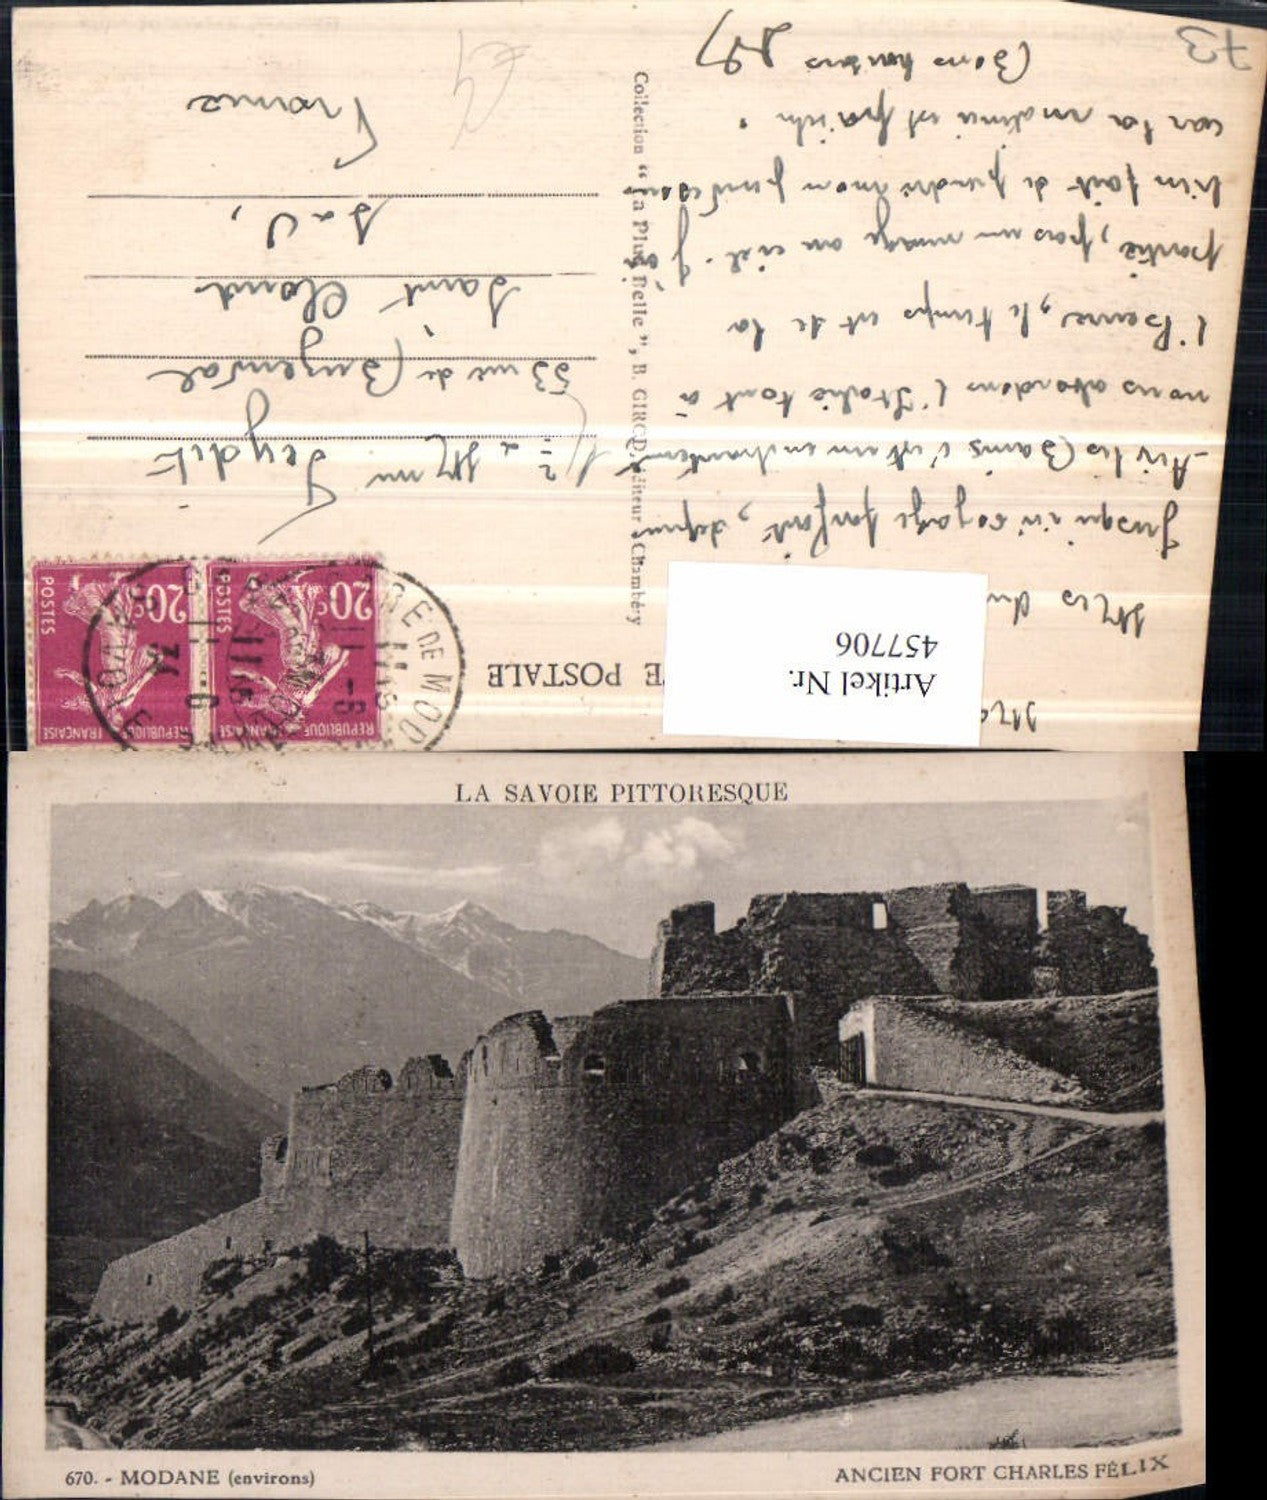 73
CARTE POSTALE
Mes
Jusqu'ici voyage parfait, depuis
Aix les Bains c'est un enchantement
nous abordons l'Italie tout à
l'heure, le temps est de la
partie, pas un nuage au ciel. J'ai
bien fait de prendre mon pardessus
car la matinée est fraîche.
(Bons baisers
Collection "La Plus Belle", B. GIROD, éditeur, Chambéry
Mr et Mme Peydit
53 rue de Buzenval
Saint Cloud
S a O,
France
REPUBLIQUE FRANÇAISE
20c
POSTES
REPUBLIQUE FRANÇAISE
20c
POSTES
Artikel Nr.
457706
LA SAVOIE PITTORESQUE
670. - MODANE (environs)
ANCIEN FORT CHARLES FÉLIX